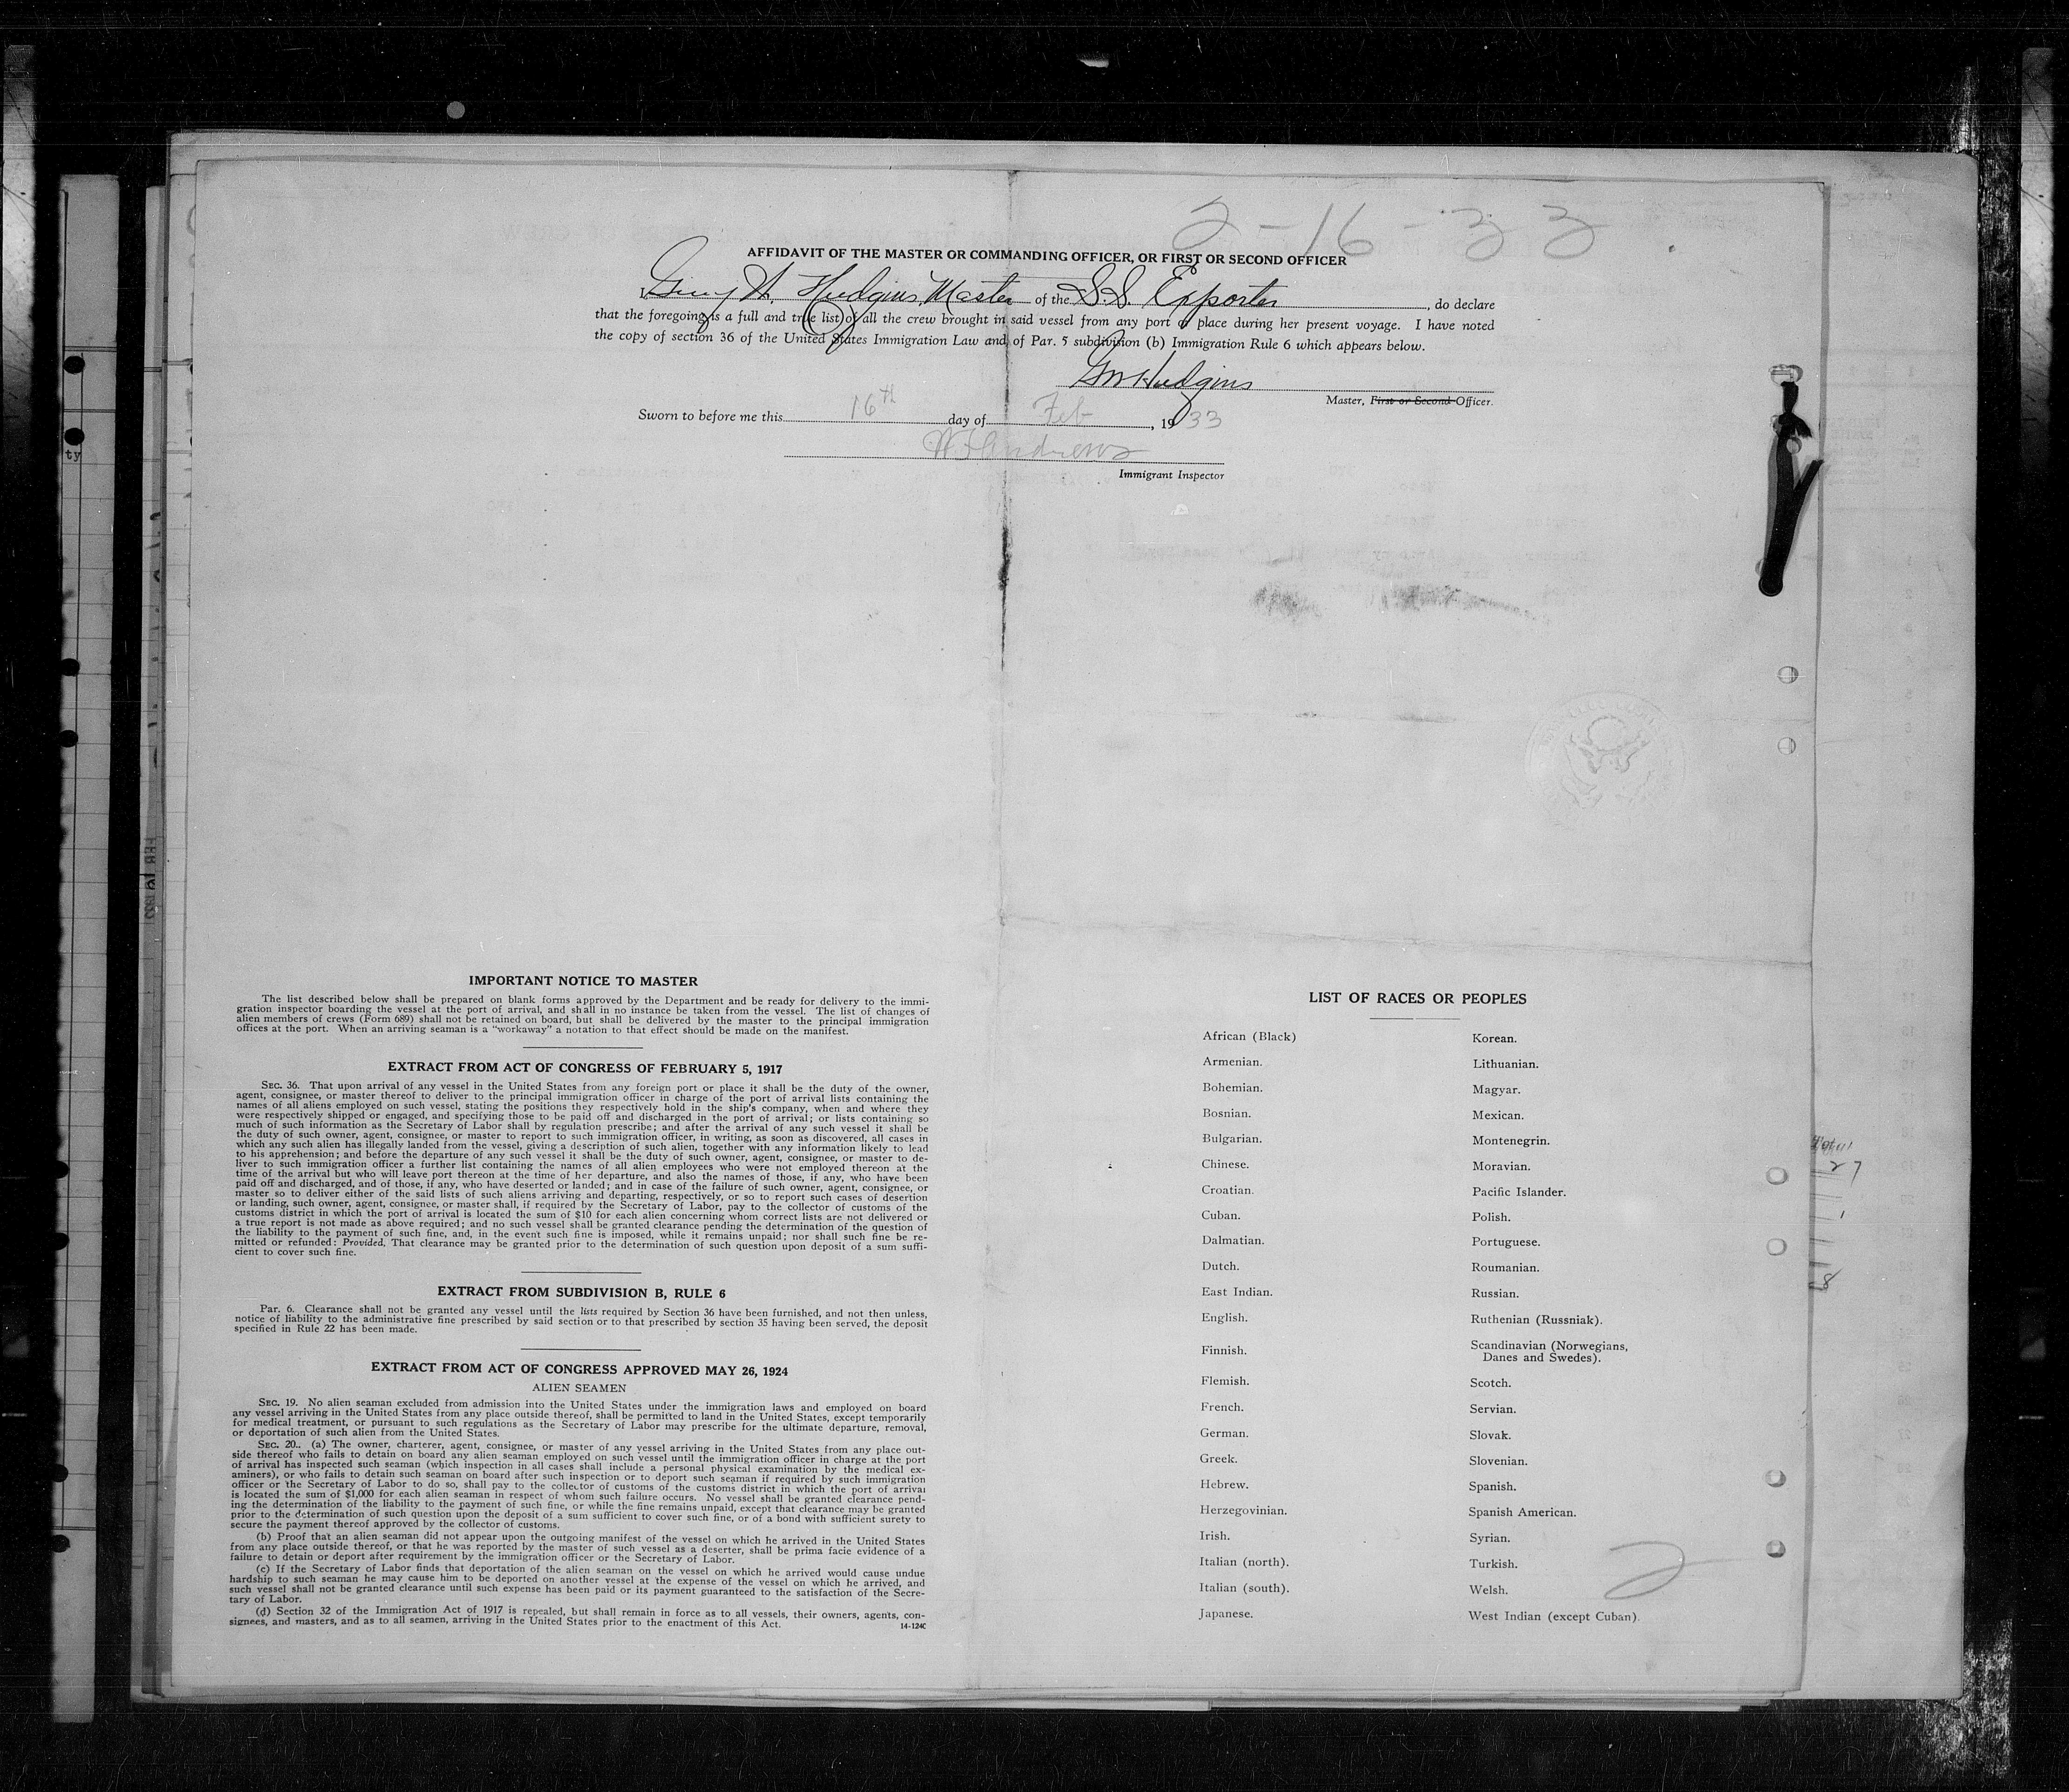 2-16-33
AFFIDAVIT OF THE MASTER OR COMMANDING OFFICER, OR FIRST OR SECOND OFFICER
I, Hudgins, Master of the S.S. Exporter, do declare
that the foregoing is a full and true list of all the crew brought in said vessel from any port or place during her present voyage. I have noted
the copy of section 36 of the United States Immigration Law and of Par. 5 subdivision (b) Immigration Rule 6 which appears below.
GW Hudgins
Master, First or Second Officer.
Sworn to before me this 16th day of Feb, 1933
Andrews
Immigrant Inspector
IMPORTANT NOTICE TO MASTER
The list described below shall be prepared on blank forms approved by the Department and be ready for delivery to the immi-
gration inspector boarding the vessel at the port of arrival, and shall in no instance be taken from the vessel. The list of changes of
alien members of crews (Form 689) shall not be retained on board, but shall be delivered by the master to the principal immigration
offices at the port. When an arriving seaman is a "workaway" a notation to that effect should be made on the manifest.
EXTRACT FROM ACT OF CONGRESS OF FEBRUARY 5, 1917
SEC. 36. That upon arrival of any vessel in the United States from any foreign port or place it shall be the duty of the owner,
agent, consignee, or master thereof to deliver to the principal immigration officer in charge of the port of arrival lists containing the
names of all aliens employed on such vessel, stating the positions they respectively hold in the ship's company, when and where they
were respectively shipped or engaged, and specifying those to be paid off and discharged in the port of arrival; or lists containing so
much of such information as the Secretary of Labor shall by regulation prescribe; and after the arrival of any such vessel it shall be
the duty of such owner, agent, consignee, or master to report to such immigration officer, in writing, as soon as discovered, all cases in
which any such alien has illegally landed from the vessel, giving a description of such alien, together with any information likely to lead
to his apprehension; and before the departure of any such vessel it shall be the duty of such owner, agent, consignee, or master to de-
liver to such immigration officer a further list containing the names of all alien employees who were not employed thereon at the
time of the arrival but who will leave port thereon at the time of her departure, and also the names of those, if any, who have been
paid off and discharged, and of those, if any, who have deserted or landed; and in case of the failure of such owner, agent, consignee, or
master so to deliver either of the said lists of such aliens arriving and departing, respectively, or so to report such cases of desertion
or landing, such owner, agent, consignee, or master shall, if required by the Secretary of Labor, pay to the collector of customs of the
customs district in which the port of arrival is located the sum of $10 for each alien concerning whom correct lists are not delivered or
a true report is not made as above required; and no such vessel shall be granted clearance pending the determination of the question of
the liability to the payment of such fine, and, in the event such fine is imposed, while it remains unpaid; nor shall such fine be re-
mitted or refunded: Provided, That clearance may be granted prior to the determination of such question upon deposit of a sum suffi-
cient to cover such fine.
EXTRACT FROM SUBDIVISION B, RULE 6
Par. 6. Clearance shall not be granted any vessel until the lists required by Section 36 have been furnished, and not then unless,
notice of liability to the administrative fine prescribed by said section or to that prescribed by section 35 having been served, the deposit
specified in Rule 22 has been made.
EXTRACT FROM ACT OF CONGRESS APPROVED MAY 26, 1924
ALIEN SEAMEN
SEC. 19. No alien seaman excluded from admission into the United States under the immigration laws and employed on board
any vessel arriving in the United States from any place outside thereof, shall be permitted to land in the United States, except temporarily
for medical treatment, or pursuant to such regulations as the Secretary of Labor may prescribe for the ultimate departure, removal,
or deportation of such alien from the United States.
SEC. 20. (a) The owner, charterer, agent, consignee, or master of any vessel arriving in the United States from any place out-
side thereof who fails to detain on board any alien seaman employed on such vessel until the immigration officer in charge at the port
of arrival has inspected such seaman (which inspection in all cases shall include a personal physical examination by the medical ex-
aminers), or who fails to detain such seaman on board after such inspection or to deport such seaman if required by such immigration
officer or the Secretary of Labor to do so, shall pay to the collector of customs of the customs district in which the port of arrival
is located the sum of $1,000 for each alien seaman in respect of whom such failure occurs. No vessel shall be granted clearance pend-
ing the determination of the liability to the payment of such fine, or while the fine remains unpaid, except that clearance may be granted
prior to the determination of such question upon the deposit of a sum sufficient to cover such fine, or of a bond with sufficient surety to
secure the payment thereof approved by the collector of customs.
(b) Proof that an alien seaman did not appear upon the outgoing manifest of the vessel on which he arrived in the United States
from any place outside thereof, or that he was reported by the master of such vessel as a deserter, shall be prima facie evidence of a
failure to detain or deport after requirement by the immigration officer or the Secretary of Labor.
(c) If the Secretary of Labor finds that deportation of the alien seaman on the vessel on which he arrived would cause undue
hardship to such seaman he may cause him to be deported on another vessel at the expense of the vessel on which he arrived, and
such vessel shall not be granted clearance until such expense has been paid or its payment guaranteed to the satisfaction of the Secre-
tary of Labor.
(d) Section 32 of the Immigration Act of 1917 is repealed, but shall remain in force as to all vessels, their owners, agents, con-
signees, and masters, and as to all seamen, arriving in the United States prior to the enactment of this Act.
14-1240
LIST OF RACES OR PEOPLES
African (Black)
Armenian.
Bohemian.
Bosnian.
Bulgarian.
Chinese.
Croatian.
Cuban.
Dalmatian.
Dutch.
East Indian.
English.
Finnish.
Flemish.
French.
German.
Greek.
Hebrew.
Herzegovinian.
Irish.
Italian (north).
Italian (south).
Japanese.
Korean.
Lithuanian.
Magyar.
Mexican.
Montenegrin.
Moravian.
Pacific Islander.
Polish.
Portuguese.
Roumanian.
Russian.
Ruthenian (Russniak).
Scandinavian (Norwegians,
Danes and Swedes).
Scotch.
Servian.
Slovak.
Slovenian.
Spanish.
Spanish American.
Syrian.
Turkish.
Welsh.
West Indian (except Cuban).
2
Total
27
ty